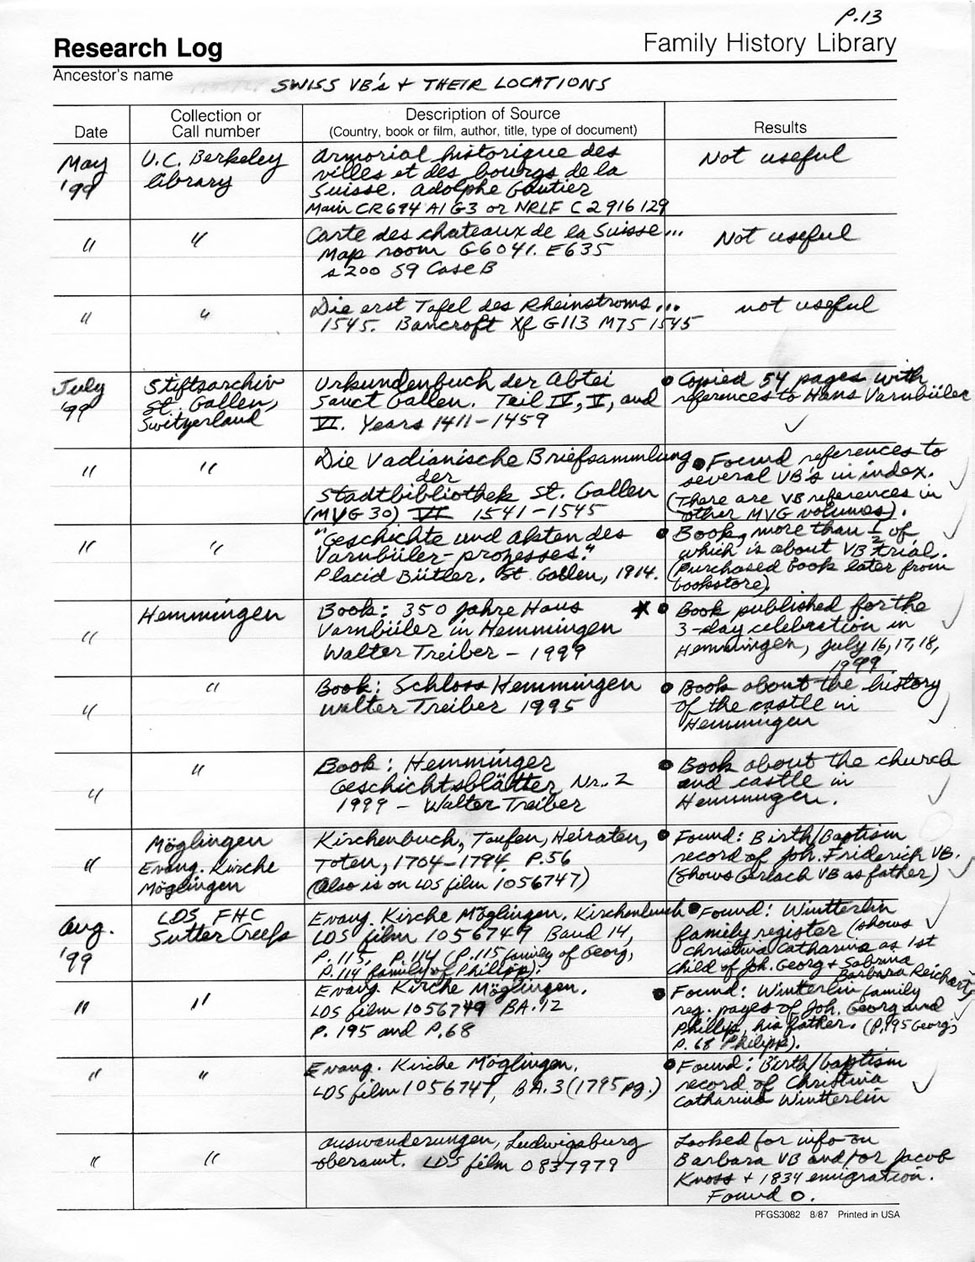 P.13
Research Log
Family History Library
Ancestor's name
SWISS VB's + THEIR LOCATIONS
Date
Collection or
Call number
Description of Source
(Country, book or film, author, title, type of document)
Results
May
'99
U.C. Berkeley
library
Armorial historique des
villes et des bourgs de la
Suisse. Adolphe Gautier
Main CR694 A1 G3 or NRLF C 2 916 129
Not useful
"
"
Carte des chateaux de la Suisse...
Map room G6041. E635
s200 S9 Case B
Not useful
"
"
Die erst Tafel des Rheinstroms...
1545. Bancroft Xf G113 M75 1545
not useful
July
'99
Stiftsarchiv
St. Gallen,
Switzerland
Urkundenbuch der Abtei
Sanct Gallen. Teil IV, V, and
VI. Years 1411-1459
Copied 54 pages with
references to Hans Varnbüler
"
"
Die Vadianische Briefsammlung
der
Stadtbibliothek St. Gallen
(MVG 30) VI 1541-1545
Found references to
several VB's in index.
(There are VB references in
other MVG volumes).
"
"
"Geschichte und Akten des
Varnbüler-prozesses."
Placid Bütler. St Gallen, 1914.
Book, more than 1/2 of
which is about VB trial.
(Purchased book later from
bookstore)
"
Hemmingen
Book: 350 Jahre Haus
Varnbüler in Hemmingen
Walter Treiber - 1999
Book published for the
3-day celebration in
Hemmingen, July 16,17,18,
1999
"
"
Book: Schloss Hemmingen
Walter Treiber 1995
Book about the history
of the castle in
Hemmingen
"
"
Book: Hemminger
Geschichtsblätter Nr. 2
1999 - Walter Treiber
Book about the church
and castle in
Hemmingen.
"
Möglingen
Evang. Kirche
Möglingen
Kirchenbuch, Taufen, Heiraten,
Toten, 1704-1794 P.56
(Also is on LDS film 1056747)
Found: Birth/Baptism
record of Joh. Friderich VB.
(shows Gerlach VB as father)
Aug.
'99
LDS FHC
Sutter Creek
Evang. Kirche Möglingen. Kirchenbuch
LDS film 1056749 Band 14,
P.115, P.114 (P.115 family of Georg,
P.114 family of Philipp).
Found: Wintterlin
family register (shows
Christina Catharina as 1st
child of Joh. Georg + Sabrina
Barbara Reichart
"
"
Evang. Kirche Möglingen.
LDS film 1056749 BA.12
P. 195 and P.68
Found: Winterlin family
reg. pages of Joh. Georg and
Phillip, his father. (P.195 Georg;
P. 68 Philipp).
"
"
Evang. Kirche Möglingen.
LDS film 1056747, BA.3 (1795 pg.)
Found: Birth/baptism
record of Christina
Catharina Wintterlin
"
"
Auswanderungen, Ludwigsburg
oberamt. LDS film 0837979
Looked for info on
Barbara VB and/or Jacob
Knoss + 1834 emigration.
Found 0.
PFGS3082 8/87 Printed in USA